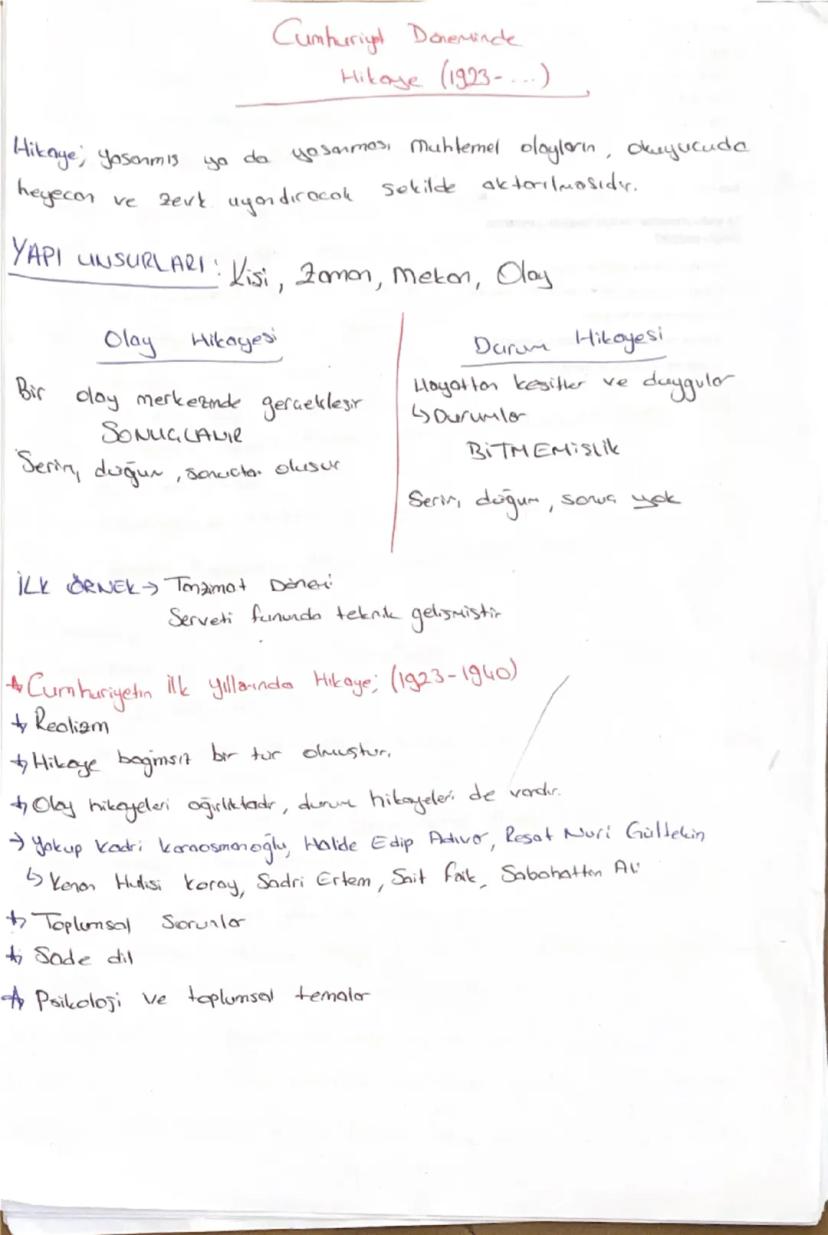 Cumhuriyet Döneminde
Hikaye (1923-...)
Hikaye; yaşanmış ya da yaşanması muhtemel olayların, okuyucuda
heyecan ve zevk uyandıracak şekilde aktarılmasıdır.
YAPI UNSURLARI: Kişi, Zaman, Mekan, Olay
Olay Hikayesi
Bir olay merkezinde gerçekleşir
SONUÇLANIR
Serim, düğüm, sonuçtan oluşur
Durum Hikayesi
Hayattan kesitler ve duygular
↳ Durumlar
BİTMEMİŞLİK
Serim, düğüm, sonuç yok
İLK ÖRNEK → Tanzimat Dönemi
Serveti fununda teknik gelişmiştir
Cumhuriyetin İlk yıllarında Hikaye; (1923-1940)
Realizm
Hikaye bağımsız bir tür olmuştur.
Olay hikayeleri ağırlıktadır, durum hikayeleri de vardır.
→ Yakup Kadri Karaosmanoğlu, Halide Edip Adıvar, Reşat Nuri Gültekin
↳ Kenan Hulisi Koray, Sadri Ertem, Sait Faik, Sabahattin Ali
Toplumsal Sorunlar
Sade dil
Psikoloji ve toplumsal temalar